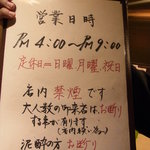 営業日時
PM 4:00〜PM 9:00
定休日＝日曜、月曜、祝日
店内禁煙です
大人数の御来店はお断り
する事が有ります
泥酔の方お断り